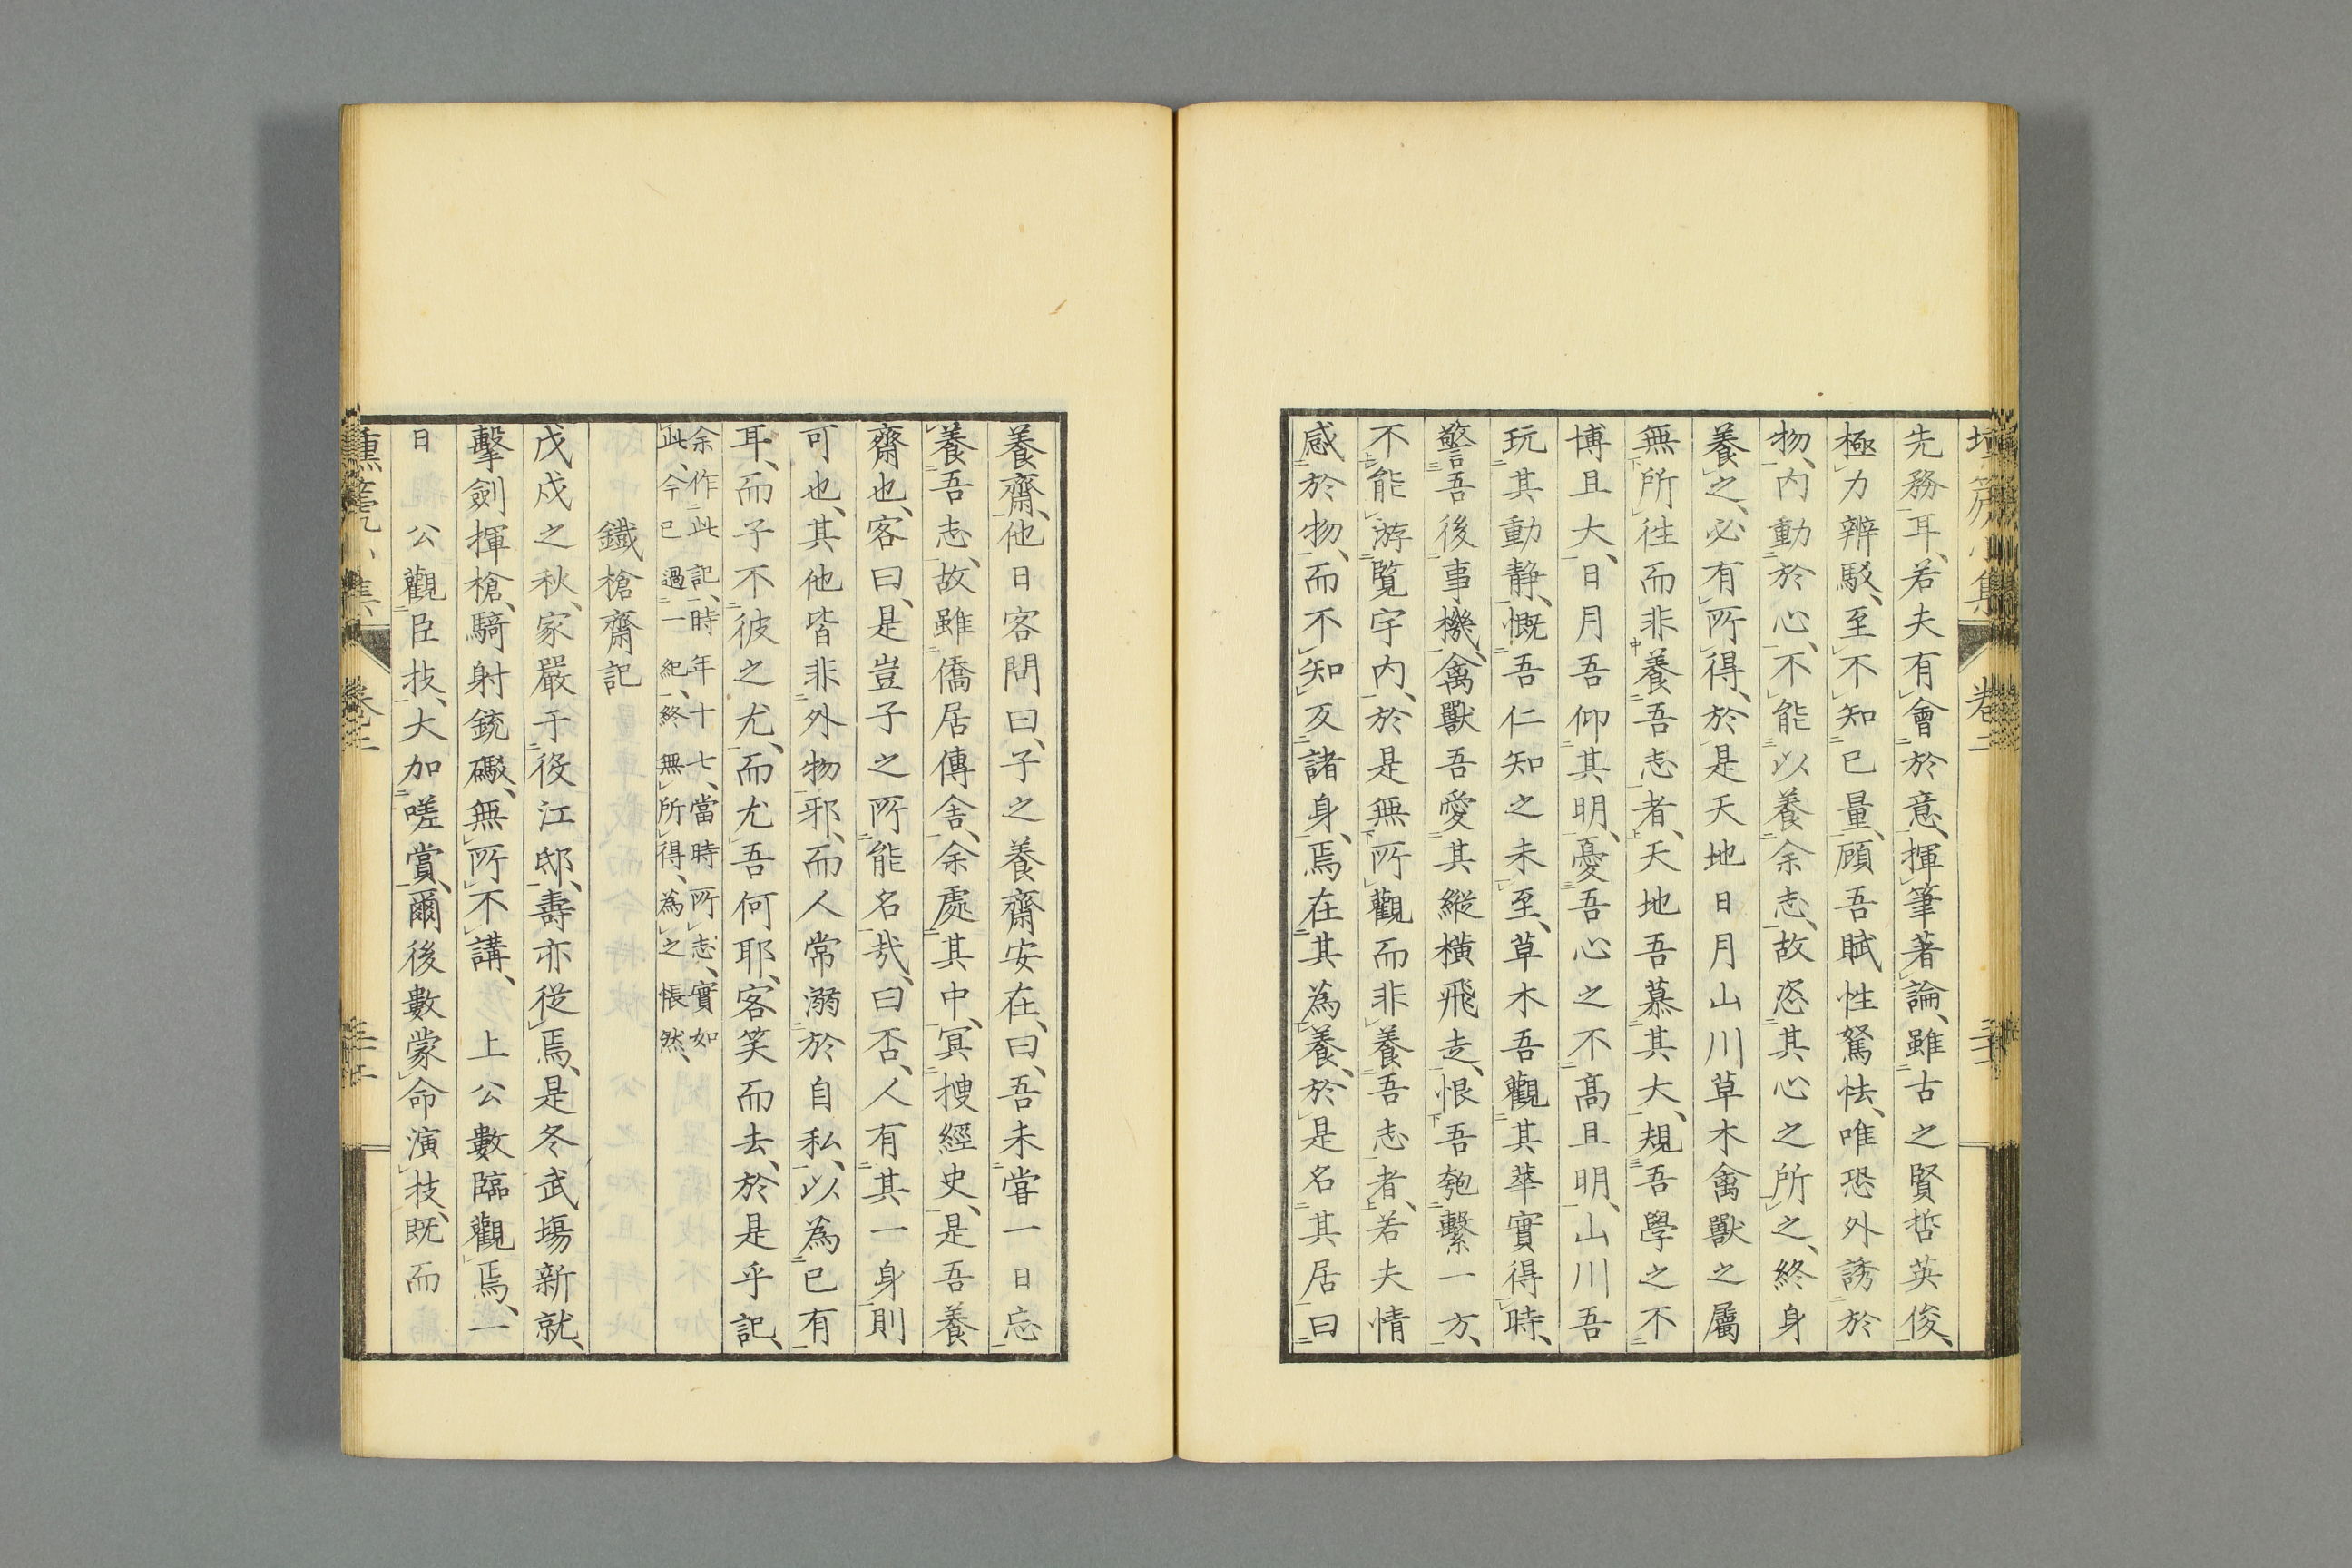 先務耳、若夫有會於意、揮筆著論、雖古之賢哲英俊、
極力辨駁、至不知已量、顧吾賦性駑怯、唯恐外誘於
物、内動於心、不能以養余志、故恣其心之所之、終身
養之、必有所得、於是天地日月山川草木禽獸之屬
無所往而非養吾志者、天地吾慕其大、規吾學之不
博且大、日月吾仰其明、憂吾心之不高且明、山川吾
玩其動静、慨吾仁知之未至、草木吾觀其華實得時、
警吾後事機、禽獸吾愛其縱橫飛走、恨吾匏繫一方、
不能游覧宇内、於是無所觀而非養吾志者、若夫情
感於物、而不知反諸身、焉在其為養、於是名其居曰
養齋、他日客問曰、子之養齋安在、曰、吾未嘗一日忘
養吾志、故雖僑居傳舎、余處其中、冥搜經史、是吾養
齋也、客曰、是豈子之所能名哉、曰否、人有其一身則
可也、其他皆非外物邪、而人常溺於自私、以為已有
耳、而子不彼之尤、而尤吾何耶、客笑而去、於是乎記、
余作此記、時年十七、當時所志、實如
此、今已過一紀、終無所得、為之悵然、
鐵槍齋記
戊戌之秋、家嚴于役江邸、壽亦從焉、是冬武場新就、
擊劍揮槍、騎射銃礟、無所不講、上公數臨觀焉、一
日公觀臣技、大加嗟賞、爾後數蒙命演技、既而
卷二